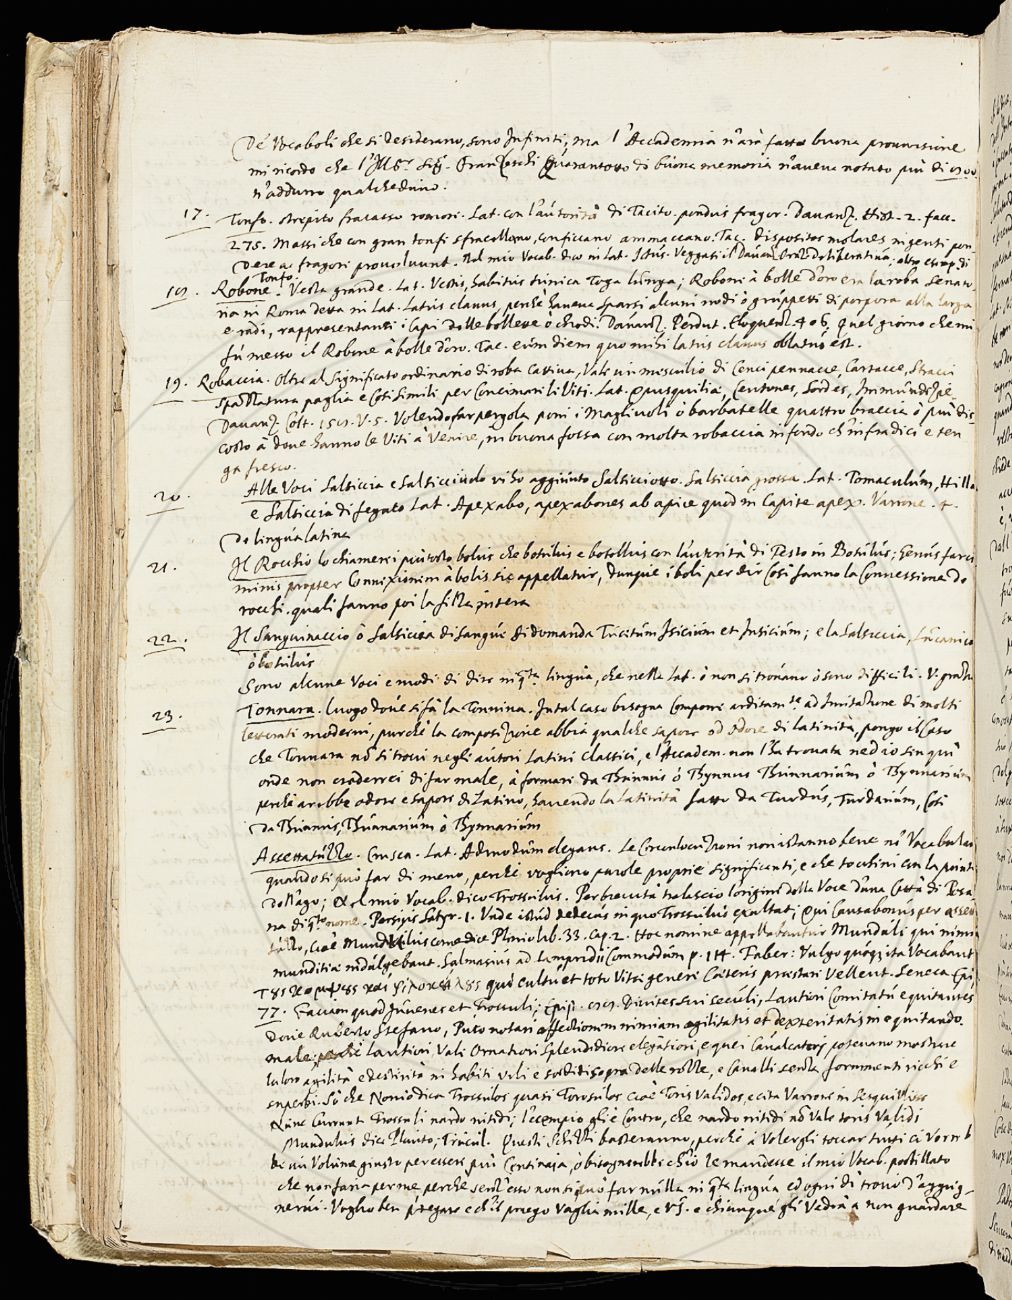 De' Vocaboli che si desiderano, sono Infiniti, ma l'Accademia n'arà fatta buona provvisione
mi ricordo che l' Franceschi Quarantotto di buona memoria n'aveva notato più di
n'addurrò qualcheduno.
17. Tonfo. strepito fracasso romori. Lat. con l'autorità di Tacito. pondus fragor. Davanz. Hist. 2. facc.
275. Massi che con gran tonfi sfracellano, conficcano ammaccano. Tac. dispositos molares ingenti pon
dere ac fragori provoluunt. Nel mio Vocab. dico in Lat. Ictus. Veggasi il Davanz.
Tonfo.
18. Robone. Vesta grande. Lat. Vestis, habitus tunica Toga lunga; Roboni à bolle d'oro era la roba Senato
ria in Roma detta in Lat. Latus clavus, perche haveva sparsi alcuni nodi ò gruppetti di porpora alla larga
e radi, rappresentanti i Capi delle bollette ò chiodi. Davanz. Perdut. Eloquenz. 406. Quel giorno che mi
fù messo il Robone à bolle d'oro. Tac. eum diem quo mihi latus clavus oblatus est.
19. Robaccia. Oltre al Significato ordinario di roba Cattiva, Vale un mescuglio di Cenci pennacce, Cartacce, Stracci
Spazzatura paglia e Cosi Simili per Concimar li Viti. Lat. quisquiliæ, Centones, Sordes, Immundizie.
Davanz. Colt. V. 5. Volendo far pergola poni i Magliuoli ò barbatelle quattro braccia ò più dis
costo à dove hanno le Viti à Venire, in buona fossa con molta robaccia in fondo ch'infradici e ten
ga fresco.
20. Alle Voci Salsiccia e Salsicciuolo vi ho aggiunto Salsicciotto. Salsiccia grossa. Lat. Tomaculum, Hilla,
e Salsiccia di fegato Lat. Apexabo, apexabones ab apice quod in Capite apex. Varrone. 4.
De lingua latina
21. Il Rocchio lo chiamerei più tosto bolus che botulus e botellus con l'autorità di Festo in Botulus; genus farci
minis propter Connexionem à bolis sic appellatur, dunque i boli per dir Cosi fanno la Connessione de
rocchi. quali fanno poi la filza intera
22. Il Sanguinaccio ò Salsiccia di sangue si domanda Tucetum Isicium et Insicium; e la Salsiccia, Lucanica
ò botulus
Sono alcune Voci e modi di dire in qta lingua, che nella Lat. ò non si trovano ò sono difficili. V. gratia
23. Tonnara. Luogo dove si fà la Tonnina. In tal caso bisogna Comporre arditamte ad Imitazione di molti
letterati moderni, purche la composizione abbia qualche sapore od odore di latinità, pongo il Caso
che Tonnara nō si trovi negli autori Latini Classici, e l'Accadem. non l'ha trovata ned io sin qui
onde non crederrei di far male, à formare da Thinnus ò Thynnus Thinnarium ò Thynnarium
perche arebbe odore e sapore di Latino, havendo la latinità fatto da Turdus, Turdarium, Cosi
Da Thinnus, Thinnarium ò Thynnarium
Assettatuzzo. Crusca. Lat. Admodum elegans. Le Circonlocuzioni non istanno bene nè Vocabolari
quando si può far di meno, perche vogliono parole proprie significanti, e che tocchino con la punta
dell'ago; Nel mio Vocab. dico Trossulus. Per brevità tralascio l'origine della Voce d'una Città di Tosca
na di qto nome. Persius Satyr. 1. Unde istud dedecus in quo Trossulus exultat; qui Causabonus per assetta
tuzzo, cioè Mundulus come dice Plinio lib. 33. Cap. 2. Hoc nomine appellabantur Munduli qui nimia
munditia indulgebant. Salmasius ad Lampridii Commodum p. 114. Faber: Vulgo quoque ita Vocabant
τȣς κομψȣς και φιλοκάλȣς qui cultu et toto Vitæ genere Cæteris præstari Vellent. Seneca Epi,
77. Faciam quod Juvenes et Trossuli; Epist. Divites Sui seculi, Lautiori Comitatu equitantes
dove Ruberto Stefano, Puto notari affectionem nimiam agilitatis et dexteritatis in equitando.
male perche Lautiori, Vali Ornatiori Splendidiore elegantiori, e quei Cavalcatori potevano mostrare
la loro agilità e destrità in habiti vili e sordidi sopra delle rozze, e Cavalli senza fornimenti ricchi e
superbi. Sò che Nonio dica Trossulos quasi Torosulos cioè Toris Validos, e cita Varrone in Sesquiulisse
Nunc Trossuli nardo nitidi; l'esempio gli è Contro, che nardo nitidi nō Vale toris Validi
Mundulus dice Plauto, Trucul. Questi Schizzi basteranno, perche à Volergli toccar tutti ci Vorreb
be un Volume giusto per essere più Centinaia, ò bisognerebbe ch'io le mandasse il mio Vocab. postillato
che non faria per me perche senz'esso non si può far nulla in qta lingua ed ogni dì trovo d'aggiug-
nervi. Voglio ben pregare e ch'il priego Vaglia mille, e VS. e chiunque gli Vedrà a non guardare